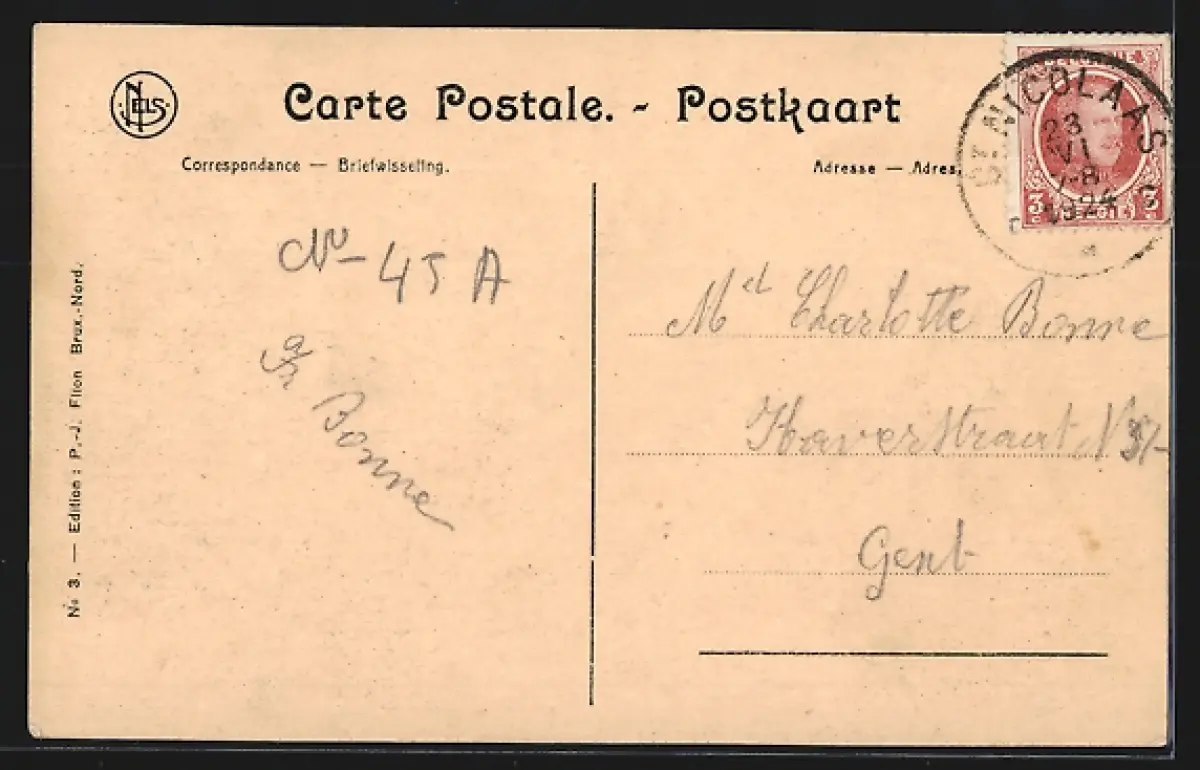 NELS
Carte Postale. - Postkaart
Correspondance — Briefwisseling.
Adresse — Adres.
ST NICOLAAS
23
VI
7-8
1924
3 3
N° 3. — Edition : P.-J. Flion Brux.-Nord.
No 45 A
Bonne
Melle Charlotte Bonne
Haverstraat N
Gent